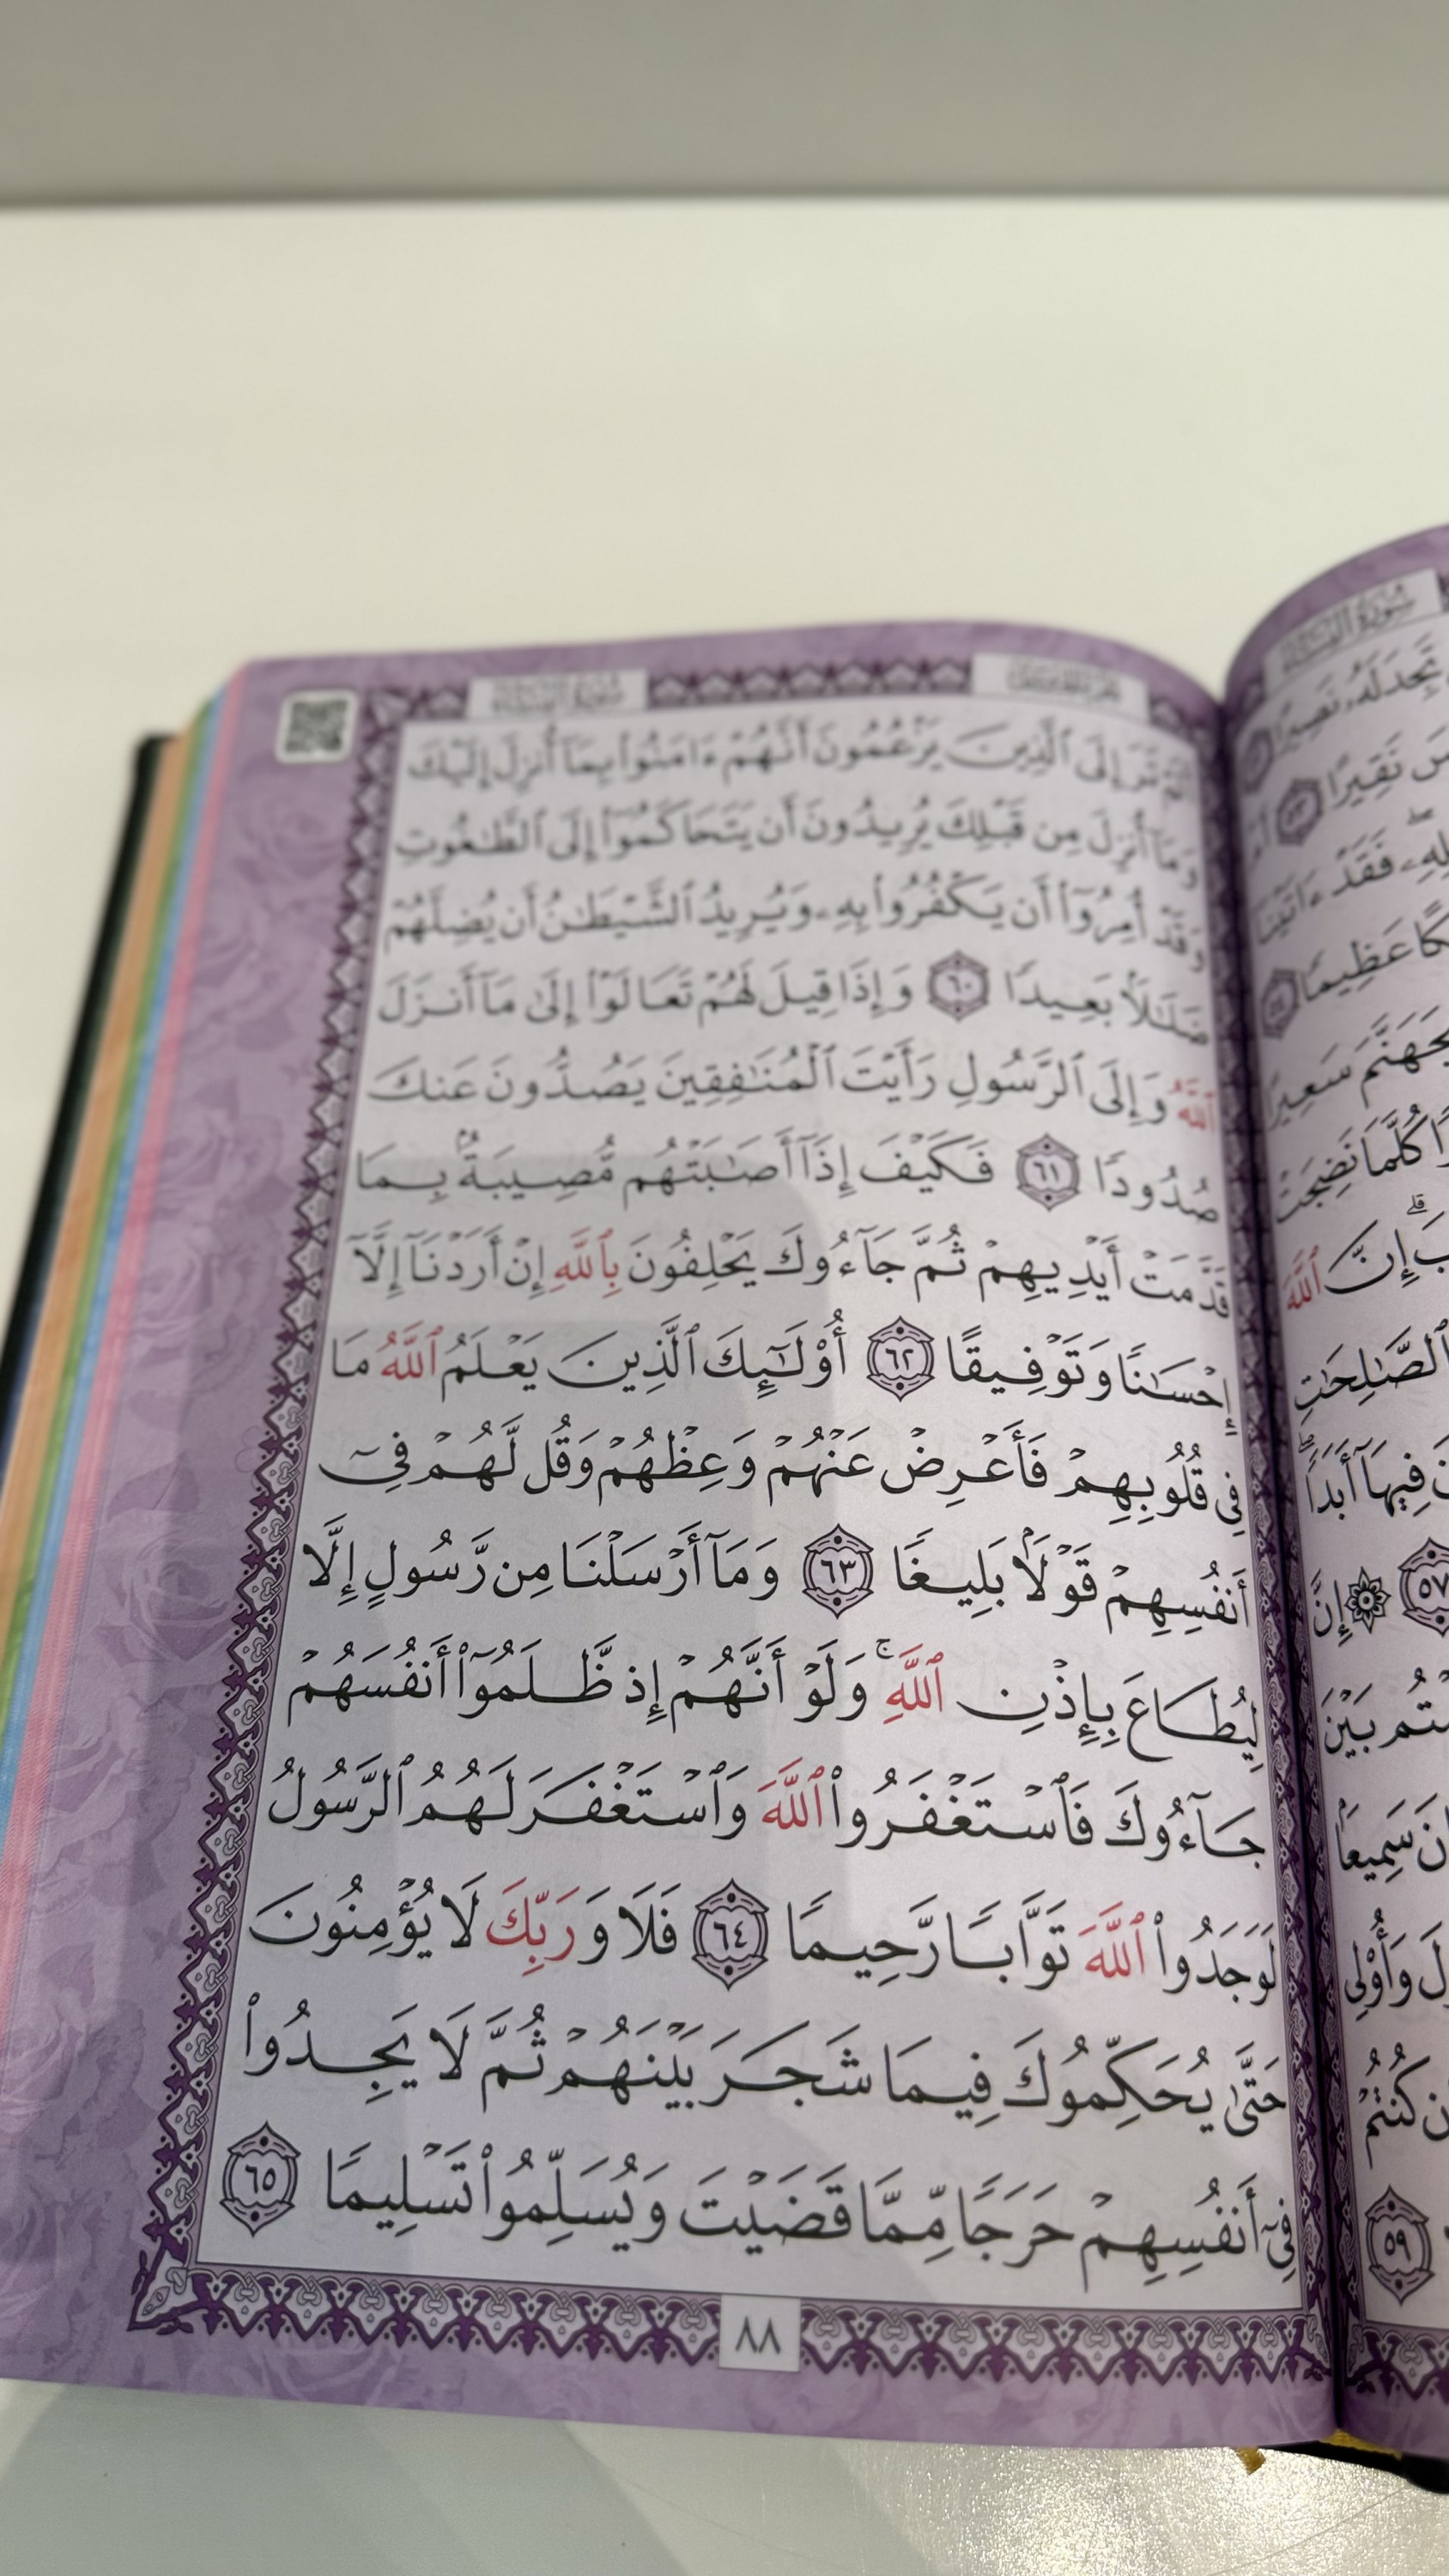 سُورَةُ النِّسَاءِ
تَجِدَ لَهُۥ نَصِيرًا
نَقِيرًا ٥٣
فَقَدْ ءَاتَيْنَا
عَظِيمًا ٥٤
بِجَهَنَّمَ سَعِيرًا
كُلَّمَا نَضِجَتْ
إِنَّ ٱللَّهَ
ٱلصَّٰلِحَٰتِ
فِيهَآ أَبَدًا
٥٧ ۞ إِنَّ
بَيْنَ
سَمِيعًا
وَأُوْلِي
كُنتُمْ
٥٩
سُورَةُ النِّسَاءِ
تَرَ إِلَى ٱلَّذِينَ يَزْعُمُونَ أَنَّهُمْ ءَامَنُوا۟ بِمَآ أُنزِلَ إِلَيْكَ
وَمَآ أُنزِلَ مِن قَبْلِكَ يُرِيدُونَ أَن يَتَحَاكَمُوٓا۟ إِلَى ٱلطَّٰغُوتِ
وَقَدْ أُمِرُوٓا۟ أَن يَكْفُرُوا۟ بِهِۦ وَيُرِيدُ ٱلشَّيْطَٰنُ أَن يُضِلَّهُمْ
ضَلَٰلًۢا بَعِيدًا ٦٠ وَإِذَا قِيلَ لَهُمْ تَعَالَوْا۟ إِلَىٰ مَآ أَنزَلَ
ٱللَّهُ وَإِلَى ٱلرَّسُولِ رَأَيْتَ ٱلْمُنَٰفِقِينَ يَصُدُّونَ عَنكَ
صُدُودًا ٦١ فَكَيْفَ إِذَآ أَصَٰبَتْهُم مُّصِيبَةٌۢ بِمَا
قَدَّمَتْ أَيْدِيهِمْ ثُمَّ جَآءُوكَ يَحْلِفُونَ بِٱللَّهِ إِنْ أَرَدْنَآ إِلَّآ
إِحْسَٰنًا وَتَوْفِيقًا ٦٢ أُو۟لَٰٓئِكَ ٱلَّذِينَ يَعْلَمُ ٱللَّهُ مَا
فِى قُلُوبِهِمْ فَأَعْرِضْ عَنْهُمْ وَعِظْهُمْ وَقُل لَّهُمْ فِىٓ
أَنفُسِهِمْ قَوْلًۢا بَلِيغًا ٦٣ وَمَآ أَرْسَلْنَا مِن رَّسُولٍ إِلَّا
لِيُطَاعَ بِإِذْنِ ٱللَّهِ ۚ وَلَوْ أَنَّهُمْ إِذ ظَّلَمُوٓا۟ أَنفُسَهُمْ
جَآءُوكَ فَٱسْتَغْفَرُوا۟ ٱللَّهَ وَٱسْتَغْفَرَ لَهُمُ ٱلرَّسُولُ
لَوَجَدُوا۟ ٱللَّهَ تَوَّابًا رَّحِيمًا ٦٤ فَلَا وَرَبِّكَ لَا يُؤْمِنُونَ
حَتَّىٰ يُحَكِّمُوكَ فِيمَا شَجَرَ بَيْنَهُمْ ثُمَّ لَا يَجِدُوا۟
فِىٓ أَنفُسِهِمْ حَرَجًا مِّمَّا قَضَيْتَ وَيُسَلِّمُوا۟ تَسْلِيمًا ٦٥
٨٨